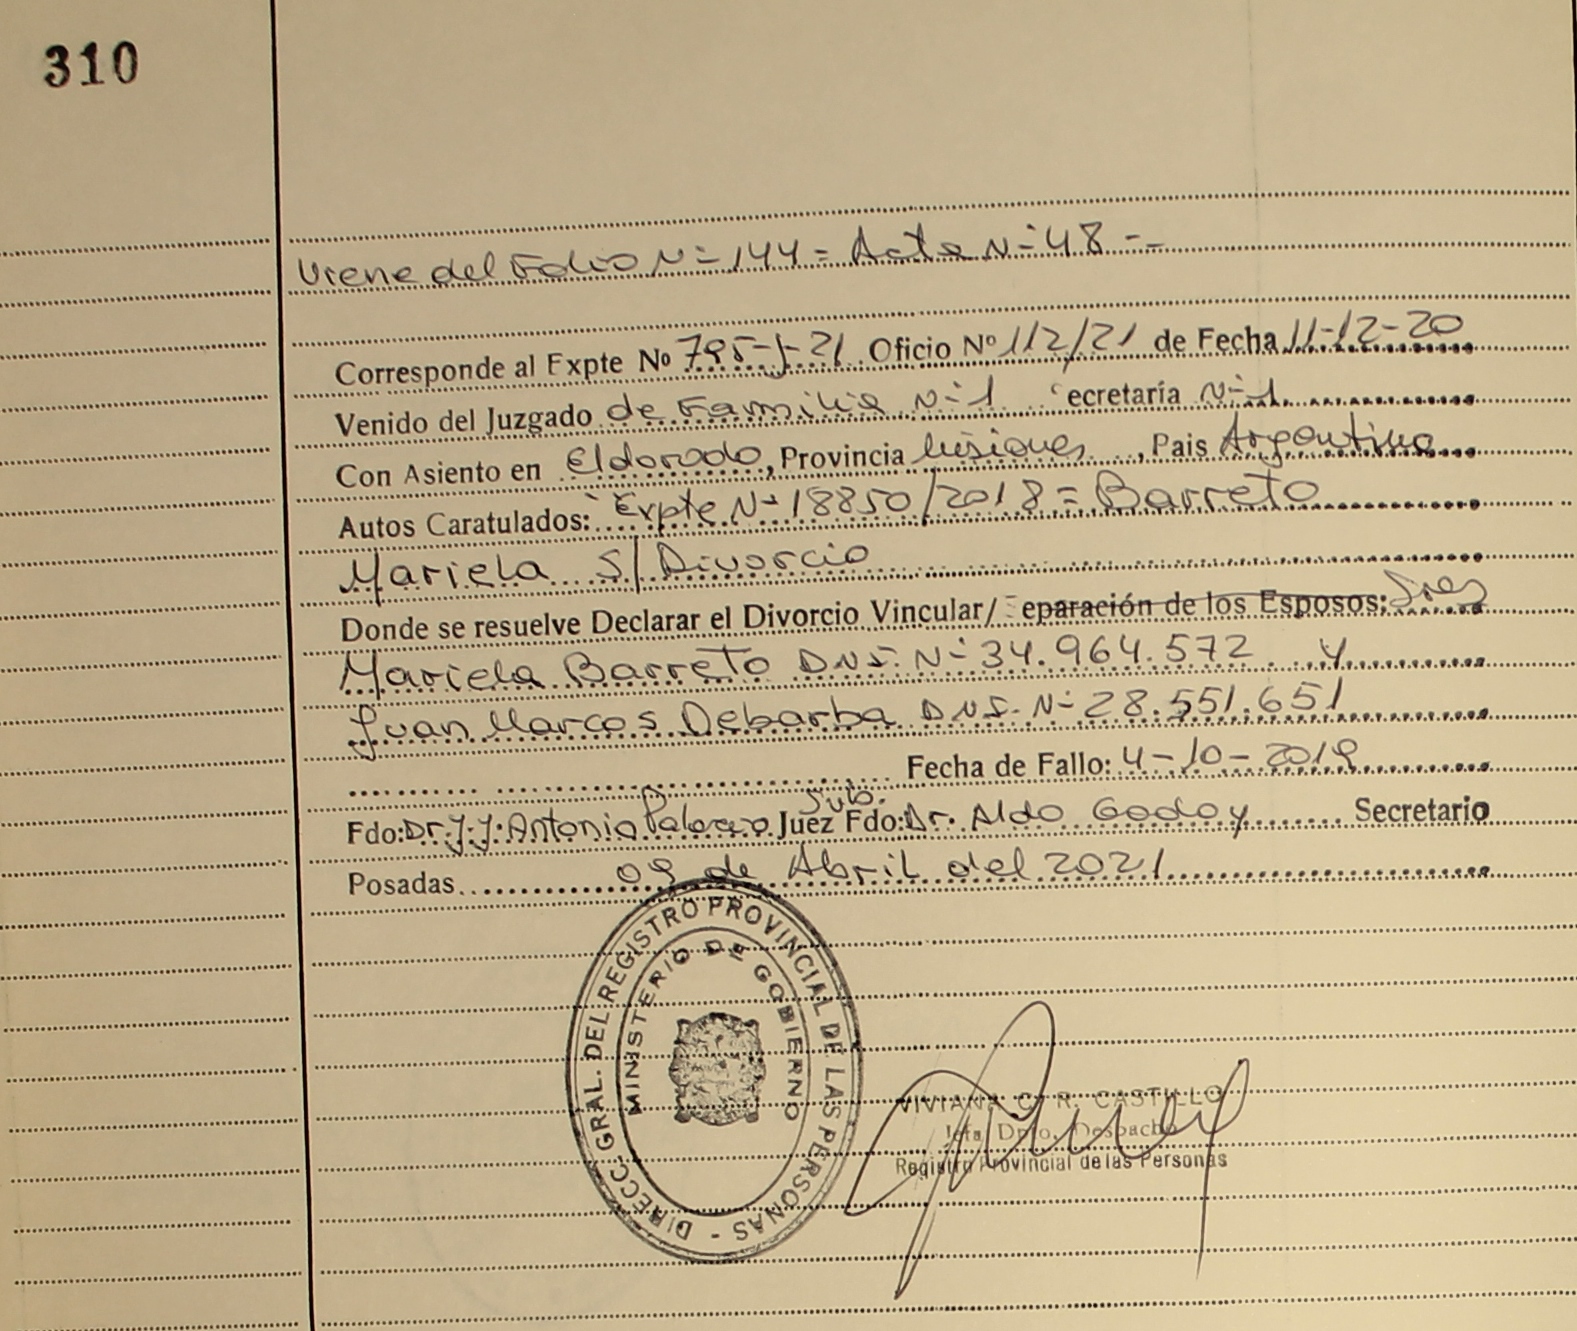 310
Viene del Folio Nº 144 = Acta Nº 48 --
Corresponde al Expte Nº 795-J-21 Oficio Nº 112/21 de Fecha 11-12-20
Venido del Juzgado de Familia Nº 1 ecretaría Nº 1
Con Asiento en Eldorado, Provincia Misiones, Pais Argentina
Autos Caratulados: Expte Nº 18850/2018 = Barreto
Mariela S/ Divorcio
Donde se resuelve Declarar el Divorcio Vincular/ eparación de los Esposos; Sres
Mariela Barreto D.N.I. Nº 34.964.572 y
Juan Marcos Debarba D.N.I. Nº 28.551.651
Fecha de Fallo: 4-10-2019
Sub.
Fdo: Dr. J.J. Antonio Juez Fdo: Dr. Aldo Godoy Secretario
Posadas 09 de Abril del 2021
DIRECC. GRAL. DEL REGISTRO PROVINCIAL DE LAS PERSONAS -
MINISTERIO DE GOBIERNO
VIVIANA C. R. CASTILLO
Jefa Dpto. Despacho
Registro Provincial de las Personas